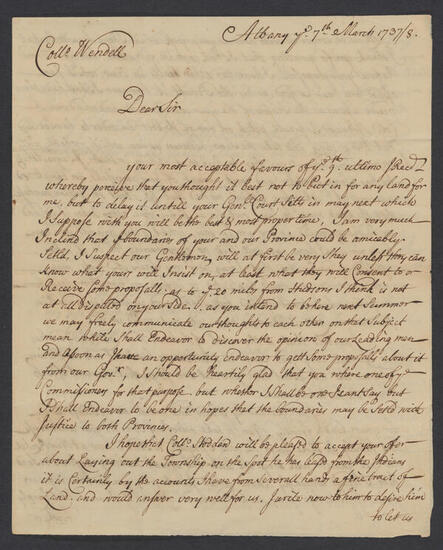 Albany ye 7th March 1737/8.
Collo. Wendell
Dear Sir
your most acceptable favours of ye. 9th. ultimo I Recd
whereby perceive that you thought it best not to put in for any land for
me, but to delay it untill your Genll. Court Setts in may next which
I suppose with you will be the best & most proper time, I am very much
Inclind that A boundary of your and our Province could be amicably
Setld, I Suspect our Gentlemen will at first be very Shy unless they can
know what yours will Insist on, at least what they will Consent to or
Receive Some proposalls, as to ye 20 miles from Hudsons I think is not
at all disputed on your Side. as you intend to be here next Summer
we may freely communicate our thoughts to each other on that Subject
mean while Shall Endeavor to discover the opinion of our Leading men
and Assoon as I have an oppertunity endeavor to gett Some proposalls about it
from our Govr., I Should be Heartily glad that you where one of ye
Commissioners for that purpose but whether I Shall be one I cant Say but
I Shall Endeavor to be one in hopes that the boundaries may be Setled with
Justice to both Provinces.
I hope that Collo. Stoddard will be pleased to accept your offer
about Laying out the Township on the Spot he has leased from the Indians
it is Certainly by the accounts I have from Severall hands a fine tract of
Land, and would answer very well for us. I write now to him to desire him
to let us